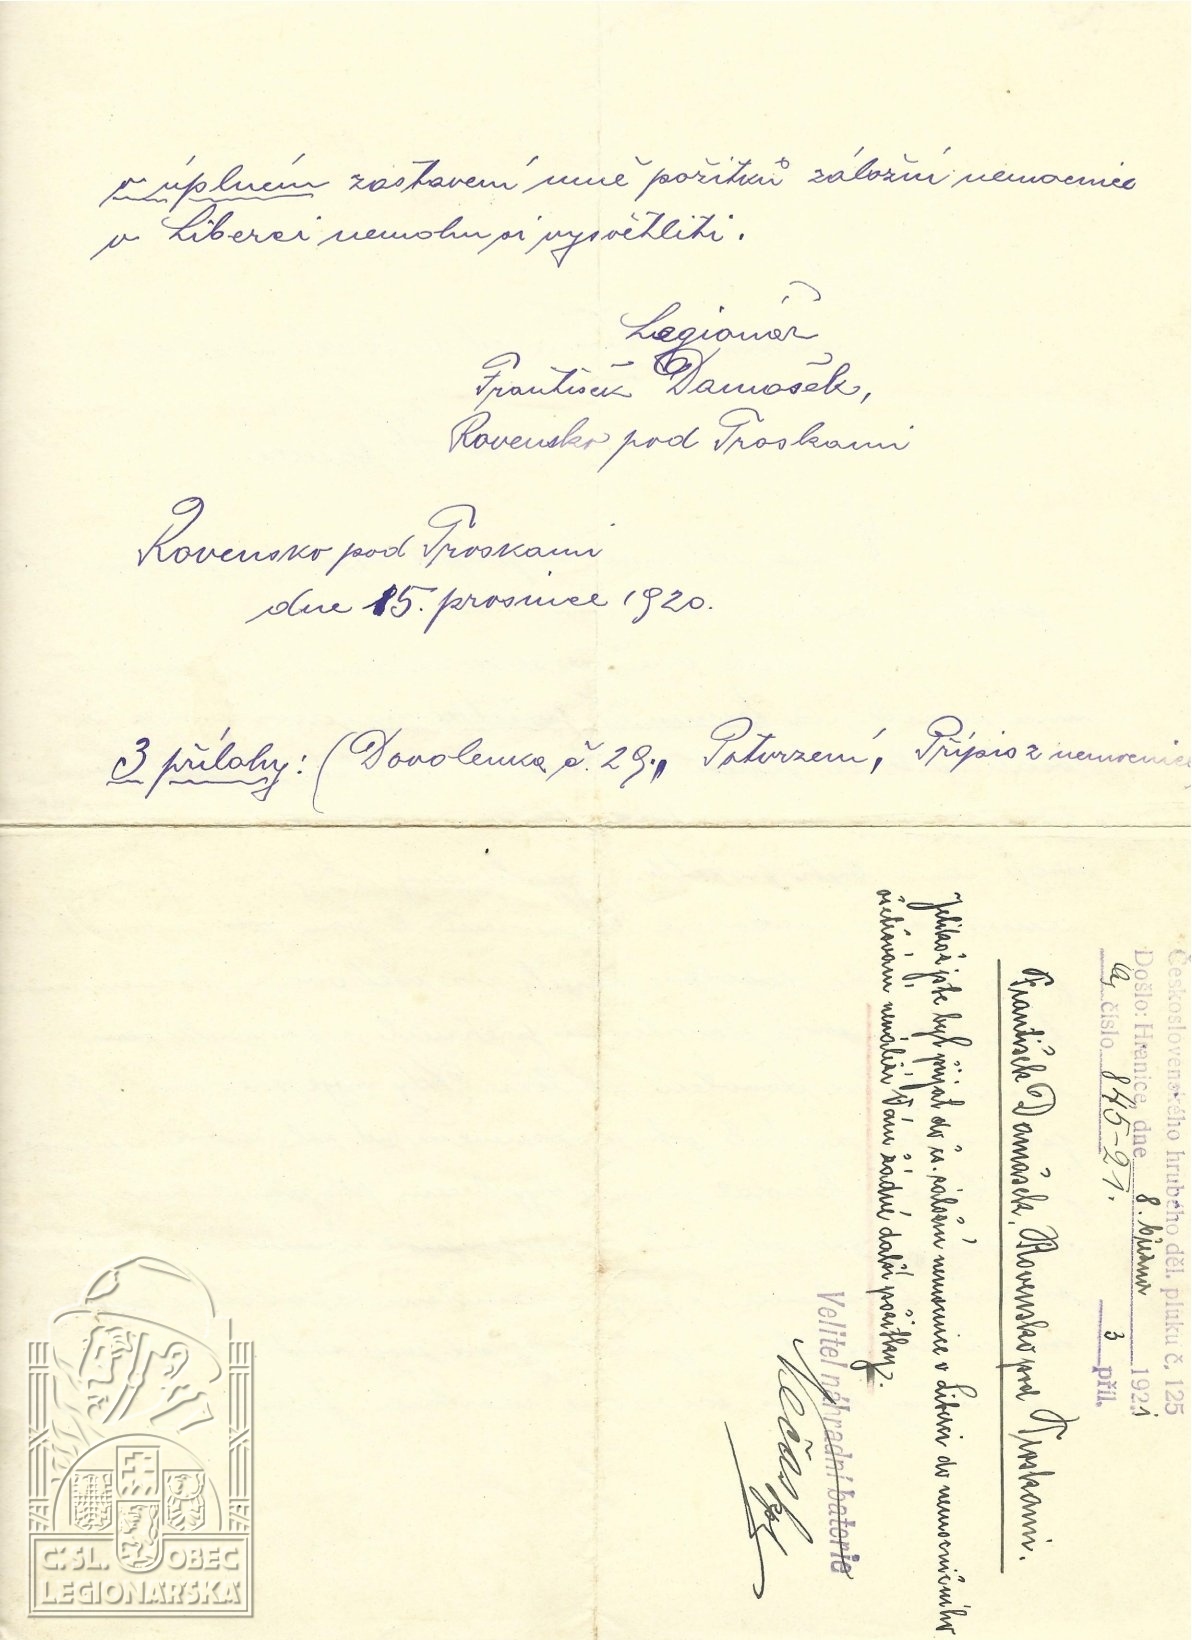 v úplném zastavení mně požitků záložní nemocnice
v Liberci nemohu si vysvětliti.
Legionář
František Damašek,
Rovensko pod Troskami
Rovensko pod Troskami
dne 15. prosince 1920.
3 přílohy: (Dovolenka č. 29., Potvrzení, Přípis z nemocnice)
Československého hrubého děl. pluku č. 125
Došlo: Hranice, dne 8. března 1921
číslo 845-21. 3 příl.
František Damašek, Rovensko pod Troskami.
Jelikož jste byl přijat do čs. záložní nemocnice v Liberci do nemocničního
ošetřování nenáleží Vám žádné další požitky.
Velitel náhradní baterie
C.SL. OBEC
LEGIONÁŘSKÁ